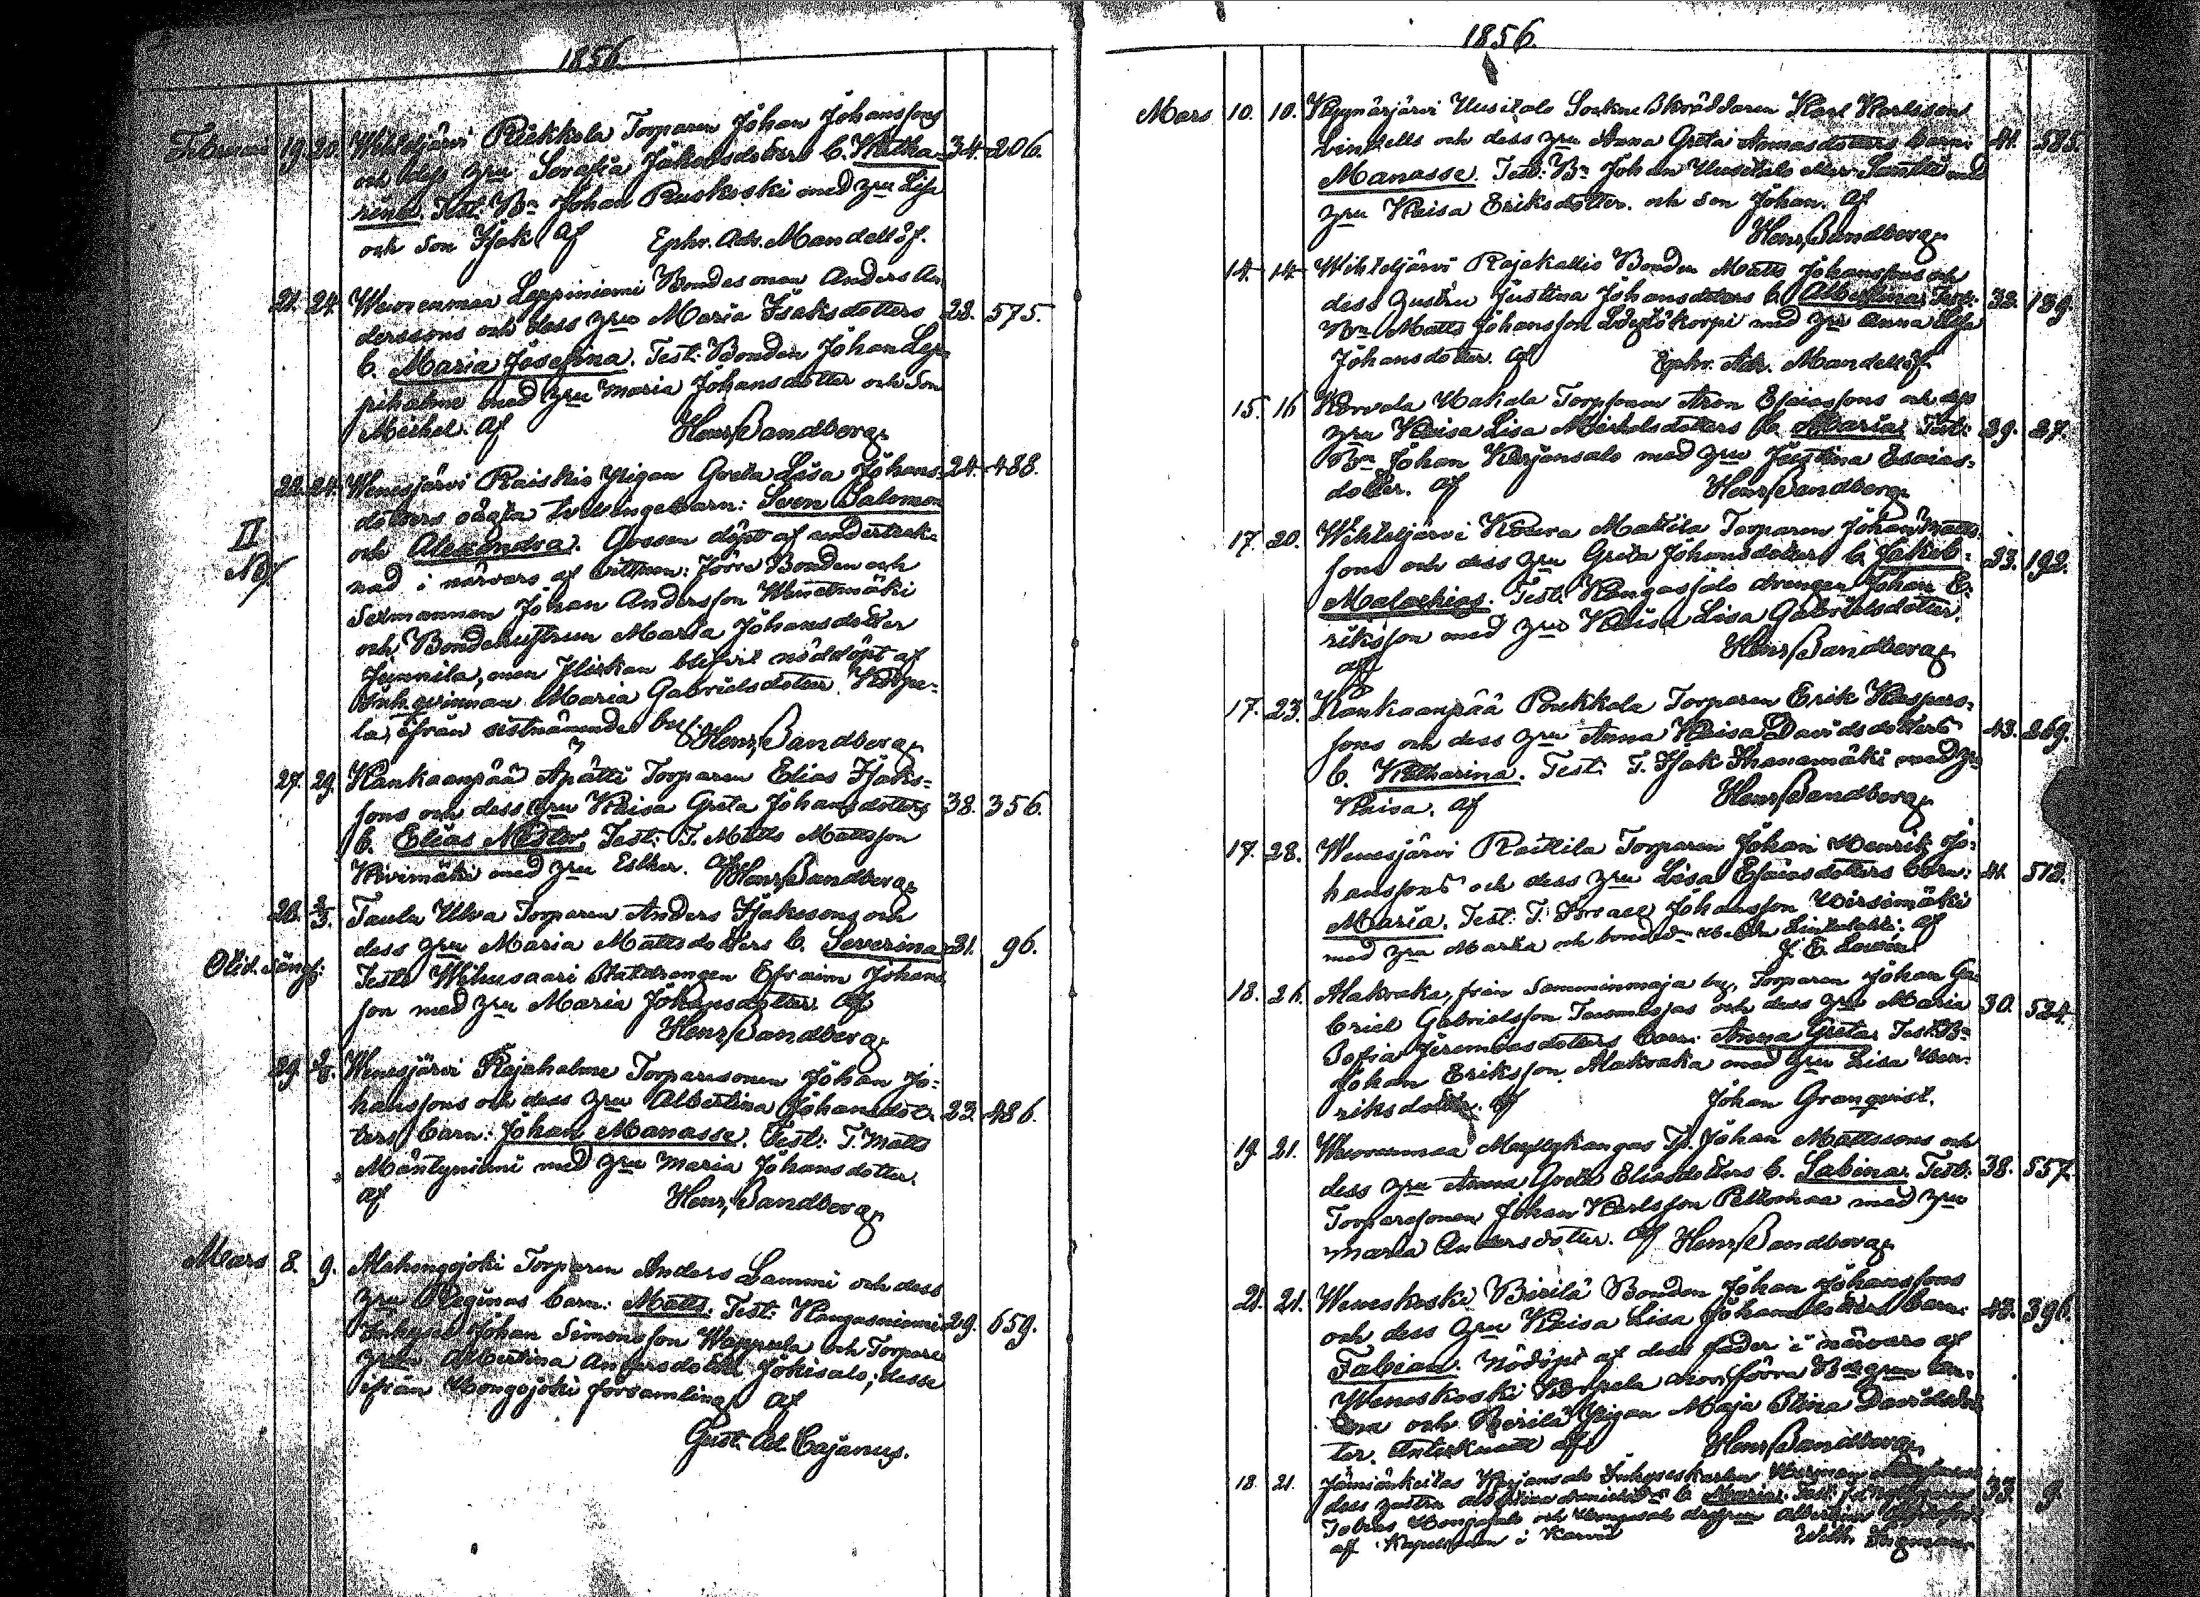 1856.
Februari 19. 20. Wihteljärvi Riekkola Torparen Johan Johanssons
och dess hru Serafia Jakobsdotters b. Wilka- 34. 206.
rina. Test: Bn Johan Ruskoski med hru Lisa
och Son Isak. Af Ephr. Adr. Mandellöf.
21. 24. Wuorenmaa Leppiniemi Bondesonen Anders An-
derssons och dess hru Maria Isaksdotters 28. 575.
b. Maria Josefina. Test: Bonden Johan Lep-
pihalme med hru Maria Johansdotter och Son
Mickel. Af Henr. Sandberg
22. 24. Wenesjärvi Raiskio Pigan Greta Lisa Johans- 24. 488.
dotters oägta tvillingebarn: Sven Salomon
II
och Alexandra. Gossen döpt af underteck-
Nöd.
nad i närvaro af vittnen: förre Bonden och
Sexmannen Johan Andersson
och Bondehustrun Maria Johansdotter
Junnila, men flickan blifvit nöddöpt af
Inh.qvinnan Maria Gabrielsdotter Korpe-
la, ifrån sistnämnde by. Henr. Sandberg
27. 29. Kankaanpää Apätti Torparen Elias Isaks-
sons och dess hru Kaisa Greta Johansdotters 38. 356.
b. Elias Nestor. Test: T. Matts Mattsson
Kivimäki med hru Esther. Af Henr. Sandberg
28. 2/3. Taula Ulva Torparen Anders Isakssons och
dess hru Maria Mattsdotters b. Severina 31. 96.
Test: Wihusaari Statdrengen Efraim Johans-
son med hru Maria Johansdotter. Af
Henr. Sandberg
29. Wenesjärvi Rajahalme Torparesonen Johan Jo-
hanssons och dess hru Albertina Johansdot- 23. 486.
ters barn: Johan Manasse. Test: T. Matts
Mäntyniemi med hru Maria Johansdotter.
Af Henr. Sandberg
Mars 8. 9. Alahongojoki Torparen Anders Lammi och dess
hru Reginas barn: Matts. Test: Kangasniemi 29. 659.
Inhyses Johan Simonsson och Torpare
hrun Albertina Andersdotter Jokisalo; desse
ifrån Hongojoki församling. Af
Gust. Ad. Cajanus.
1856.
Mars 10. 10. Kyynärjärvi Uusitalo Sockne Skräddaren Karl Karlsson
och dess hru Anna Greta Annasdotters barn: 41. 585.
Manasse. Test: Bn Johan Uusitalo eller Santti med
hru Kaisa Eriksdotter. och Son Johan. Af
Henr. Sandberg
14. 14. Wihteljärvi Rajakallio Bonden Matts Johanssons och
dess hustru Justina Johansdotters b. Albertina. Test: 32. 189.
Bn Matts Johansson med hru Anna Lisa
Johansdotter. Af Ephr. Adr. Mandellöf.
15. 16 Torparen Aron Esaiassons och dess
hru Kaisa Lisa Mickelsdotters b. Maria. Test: 29. 27.
Bn Johan Karjansalo med hru Justina Esaias-
dotter. Af Henr. Sandberg
17. 20. Wihteljärvi Mattila Torparen Johan Matts-
sons och dess hru Greta Johansdotters b. Jakob- 33. 192.
Malachias. Test: Kangassalo drengen Johan E-
riksson med hru Kaisa Lisa Gabrielsdotter.
Af Henr. Sandberg
17. 23. Kankaanpää Poukkola Torparen Erik Kaspers-
sons och dess hru Anna Kaisa Davidsdotters 43. 269.
b. Katharina. Test: T. Isak Ihanamäki med hru
Kaisa. Af Henr. Sandberg
17. 28. Wenesjärvi Raitila Torparen Johan Henrik Jo-
hanssons och dess hru Lisa Esaiasdotters barn: 41. 512.
Maria. Test: T. Johansson
med hru Marta och Af
J. E. Lovén
18. 26. Alakraka, från Samminmaja by, Torparen Johan Ga-
briel Gabrielsson och dess hru Maria 30. 524.
Sofia Jeremiasdotters barn: Anna Greta. Test: Bn
Johan Eriksson Alakraka med hru Lisa Hen-
riksdotter. Af Johan Granqvist.
19. 21. Wuorenmaa Myllykangas Tp. Johan Mattssons och
dess hru Anna Greta Eliasdotters b. Sabina. Test: 38. 557.
Torparesonen Johan Karlsson Peltomaa med hru
Maria Andersdotter. Af Henr. Sandberg
21. 21. Weneskoski Birilä Bonden Johan Johanssons
och dess hru Kaisa Lisa Johansdotters barn: 43. 396.
Fabian. Nöddöpt af dess fader i närvaro af
Weneskoski Korpela
och Birilä Pigan Maja Stina Davidsdot-
ter. Antecknadt af Henr. Sandberg
18. 21. Jämiänkeitas Karjansalo Inhyseskarlen Herman
dess hustru b. Maria. Test: 33. 9.
Tobias och
af Kapellanen i Karvia Wilh. Ingman